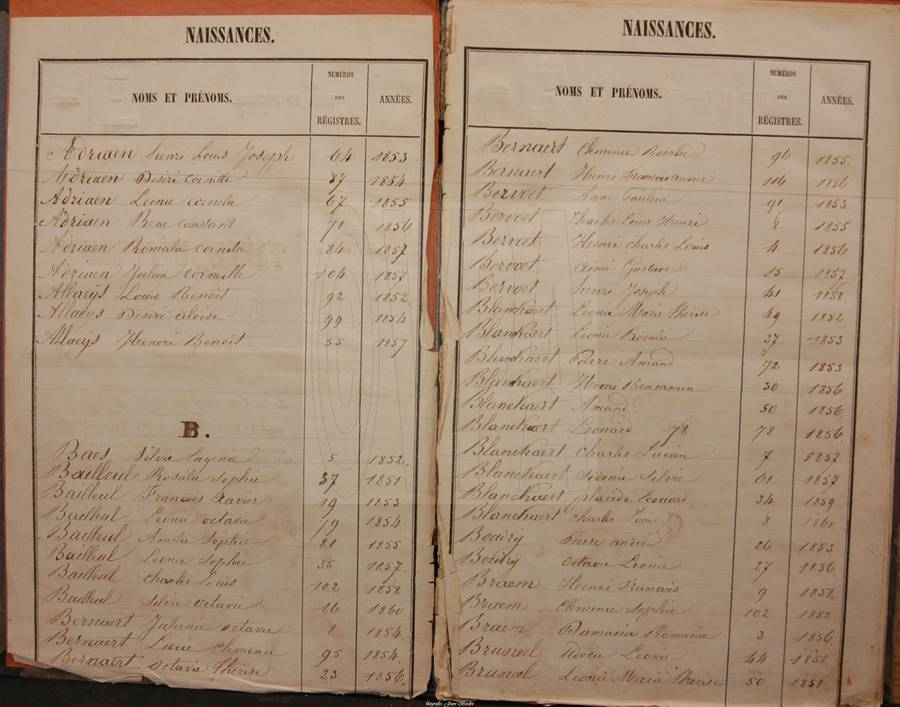 NAISSANCES.
NOMS ET PRÉNOMS. NUMÉROS DES RÉGISTRES. ANNÉES.
Adriaen henri Louis Joseph 64 1853
Adriaen Desiré 87 1854
Adriaen Leonie 67 1855
Adriaen Rene constant 71 1856
Adriaen Romalie 84 1857
Adriaen Julien 104 1857
Allaeÿs Louis Benoit 92 1852
Allaeÿs Desiré aloise 99 1854
Allaeÿs Honoré Benoit 55 1857
B.
Baes Silvie Eugenie 5 1852
Bailleul Rosalie Sophie 37 1851
Bailleul François Xavier 19 1853
Bailleul Leonie octavie 79 1854
Bailleul Amelie Sophie 81 1855
Bailleul Leonie Sophie 35 1857
Bailleul Charles Louis 102 1858
Bailleul Silvie octavie 16 1860
Bernaert Julienne octavie 8 1854
Bernaert Lucie Clemence 95 1854
Bernaert octavie Thérèse 23 1856
NAISSANCES.
NOMS ET PRÉNOMS. NUMÉROS DES RÉGISTRES. ANNÉES.
Bernaert Clemence Rosalie 96 1855
Bernaert Henri Francois 116 1856
Bervoet Anne Pauline 91 1853
Bervoet Charles Louis Henri 8 1855
Bervoet Henri Charles Louis 4 1856
Bervoet aimé Gustave 15 1857
Bervoet henri Joseph 41 1858
Blanckaert Leonie Marie Therese 49 1852
Blanckaert Leonie Rosalie 37 1853
Blanckaert Pierre Amand 72 1853
Blanckaert Henri Benjamin 30 1856
Blanckaert Amand 50 1856
Blanckaert Leonard 78 78 1856
Blanckaert Charles Lucien 7 1857
Blanckaert Sidonie Silvie 61 1857
Blanckaert placide Edouard 34 1859
Blanckaert Charles Louis 8 1860
Boudry Pierre andré 26 1853
Boudry Octavie Leonie 27 1856
Braem Henri Francois 9 1851
Braem Clemence Sophie 102 1852
Braem Romanie 3 1856
Bruneel Leonie 44 1851
Bruneel Leonie Marie Therèse 50 1851